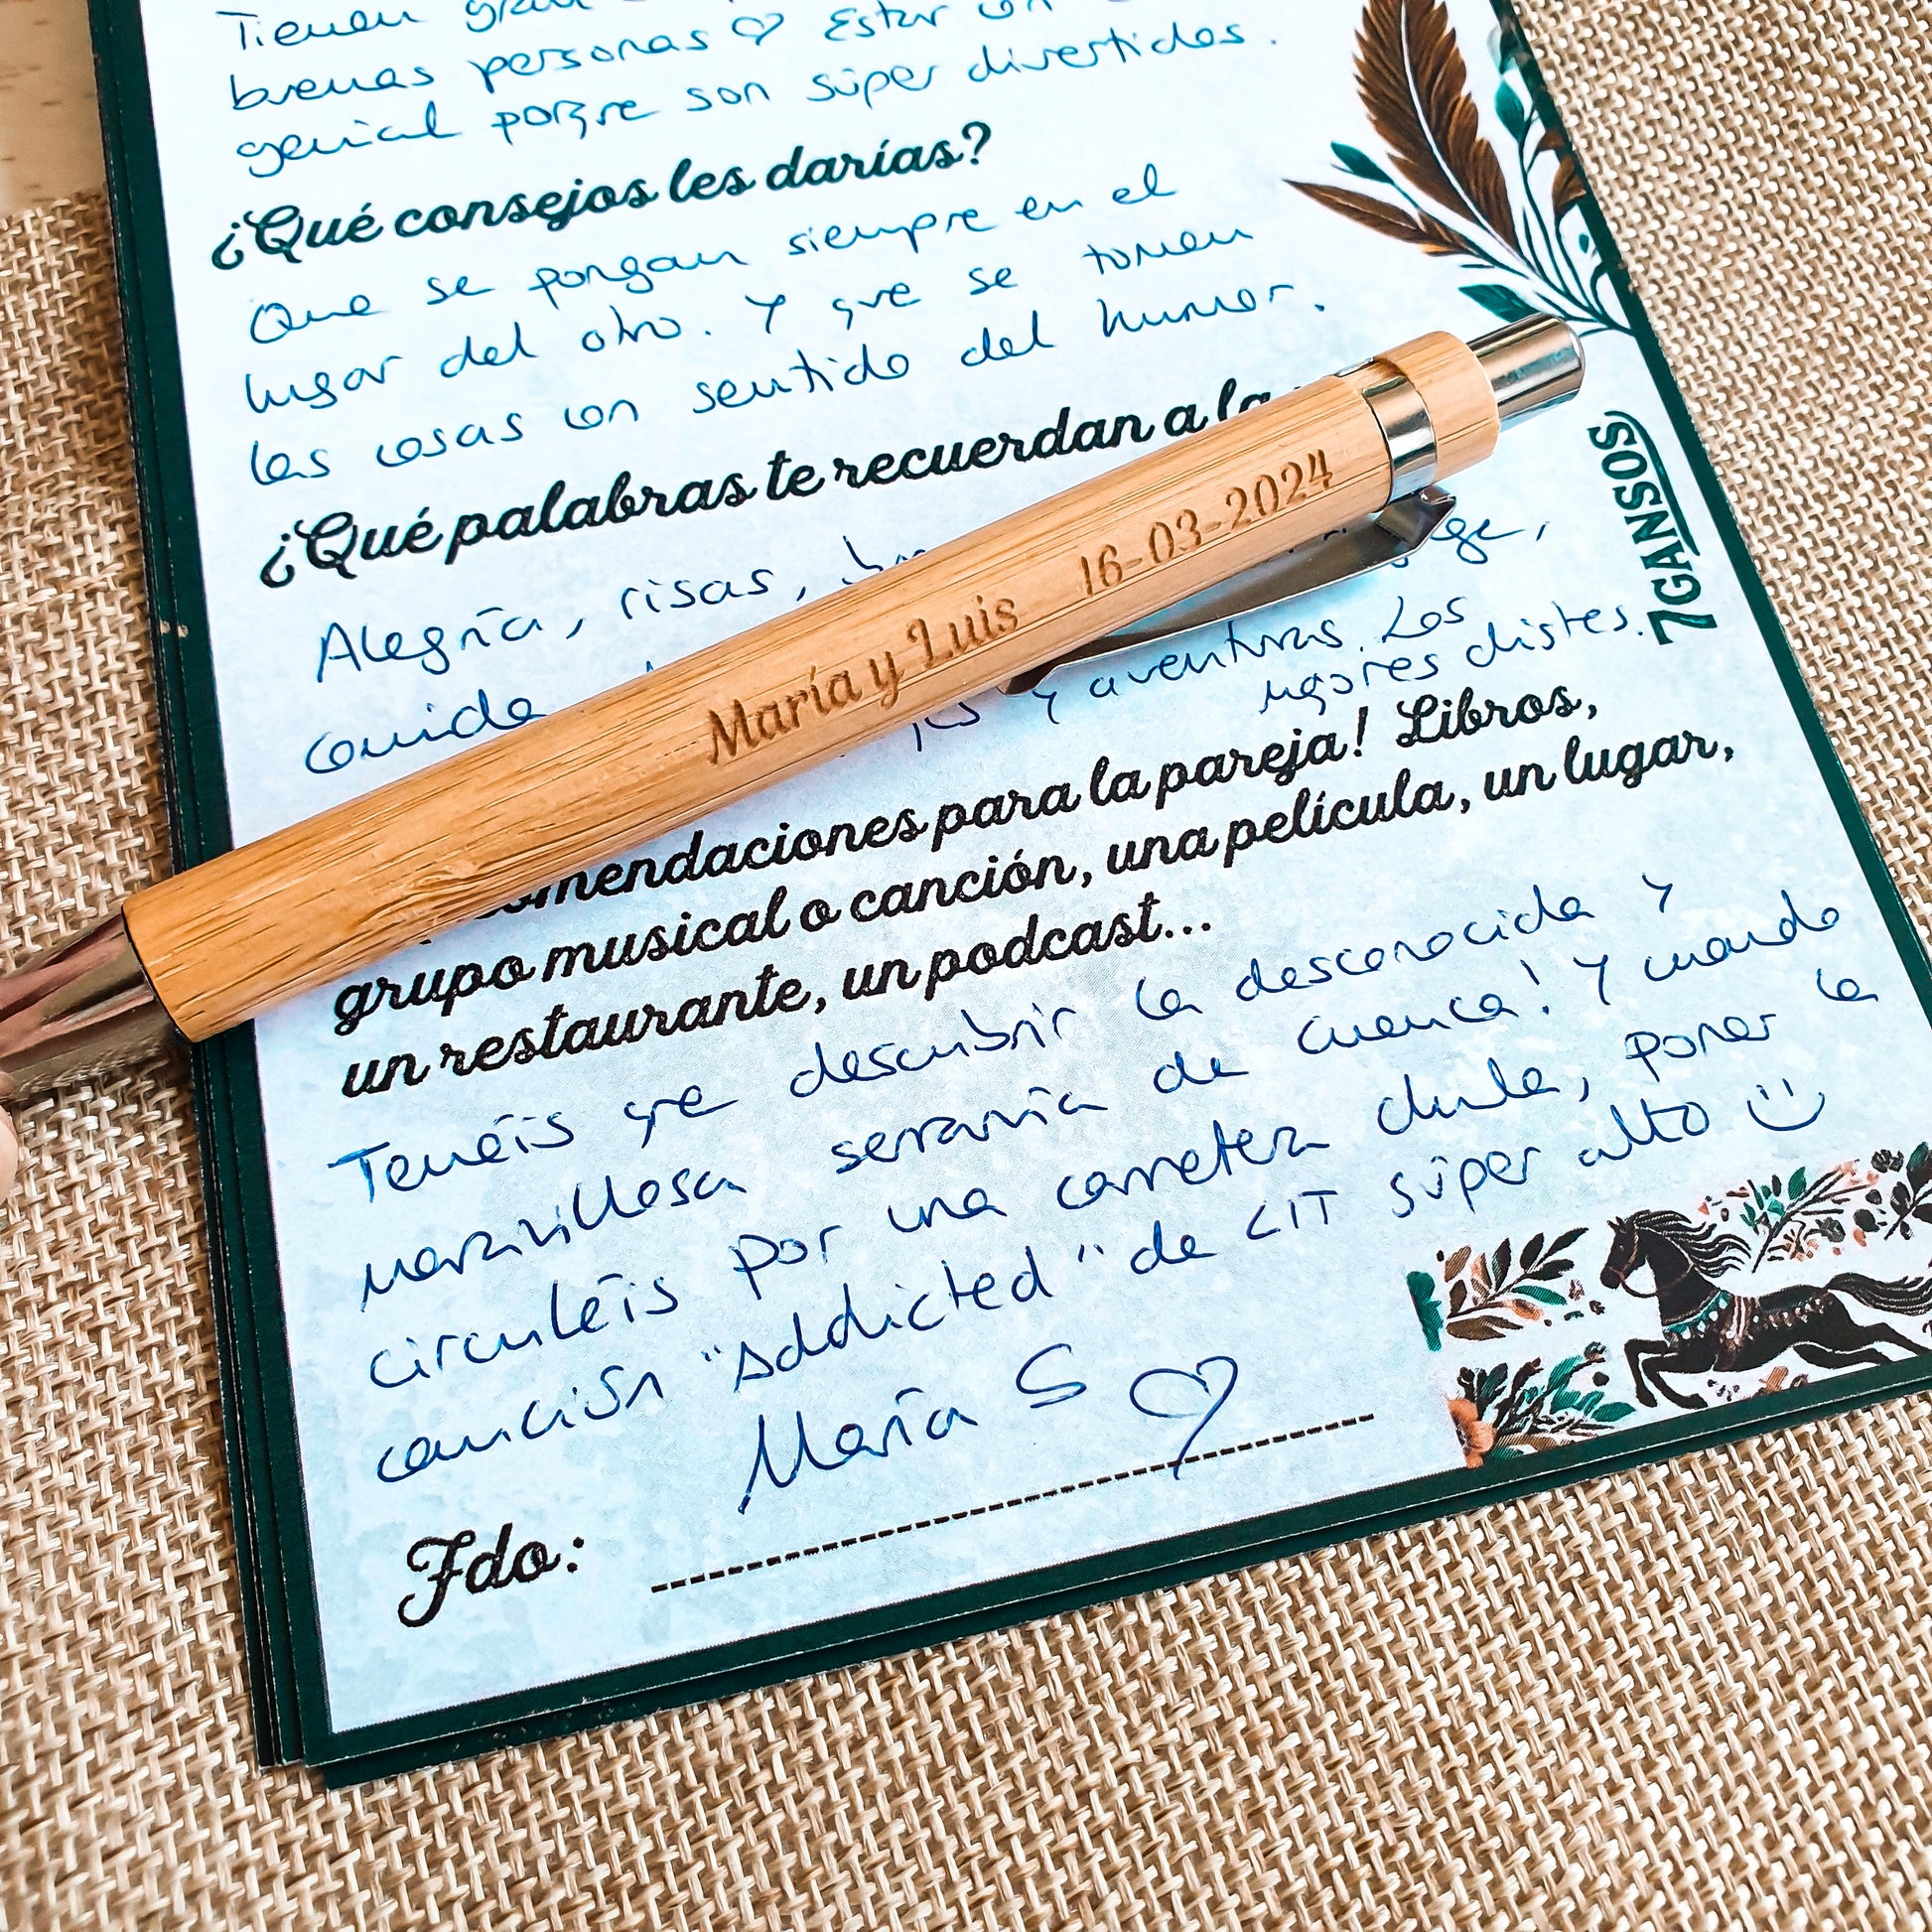 Tienen
buenas personas ♡ Estar
genial porque son súper divertidos.
¿Qué consejos les darías?
Que se pongan siempre en el
lugar del otro. Y que se tomen
las cosas con sentido del humor.
¿Qué palabras te recuerdan a la
Alegría, risas,
comida y aventuras. Los
mejores chistes.
María y Luis 16-03-2024
7GANSOS
para la pareja! Libros,
grupo musical o canción, una película, un lugar,
un restaurante, un podcast...
Tenéis que descubrir la desconocida y
maravillosa serranía de Cuenca! Y cuando
circuléis por una carretera chula, poner la
canción "Addicted" de CIT súper alto
María S ♡
Fdo: